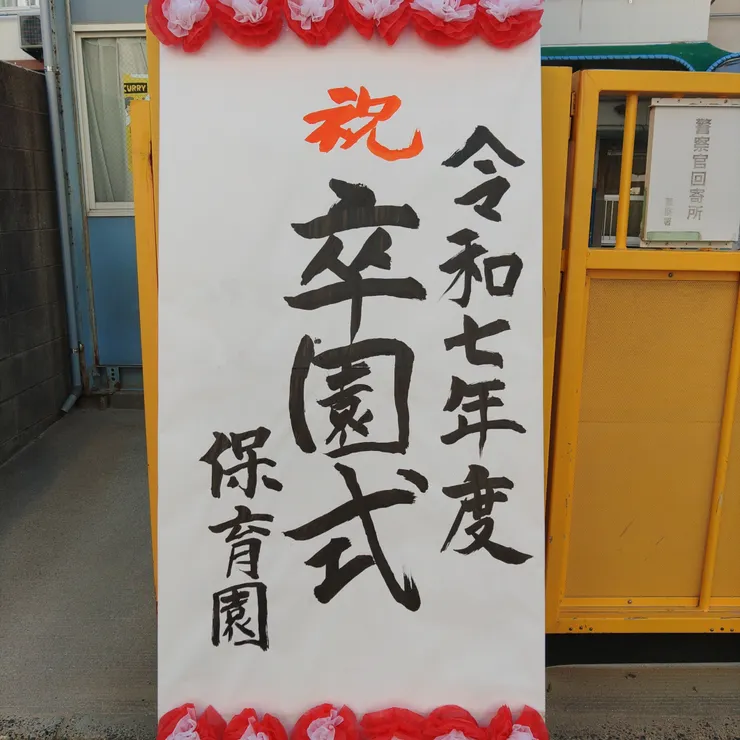 令和七年度
祝
卒園式
保育園
警察官回寄所
CURRY